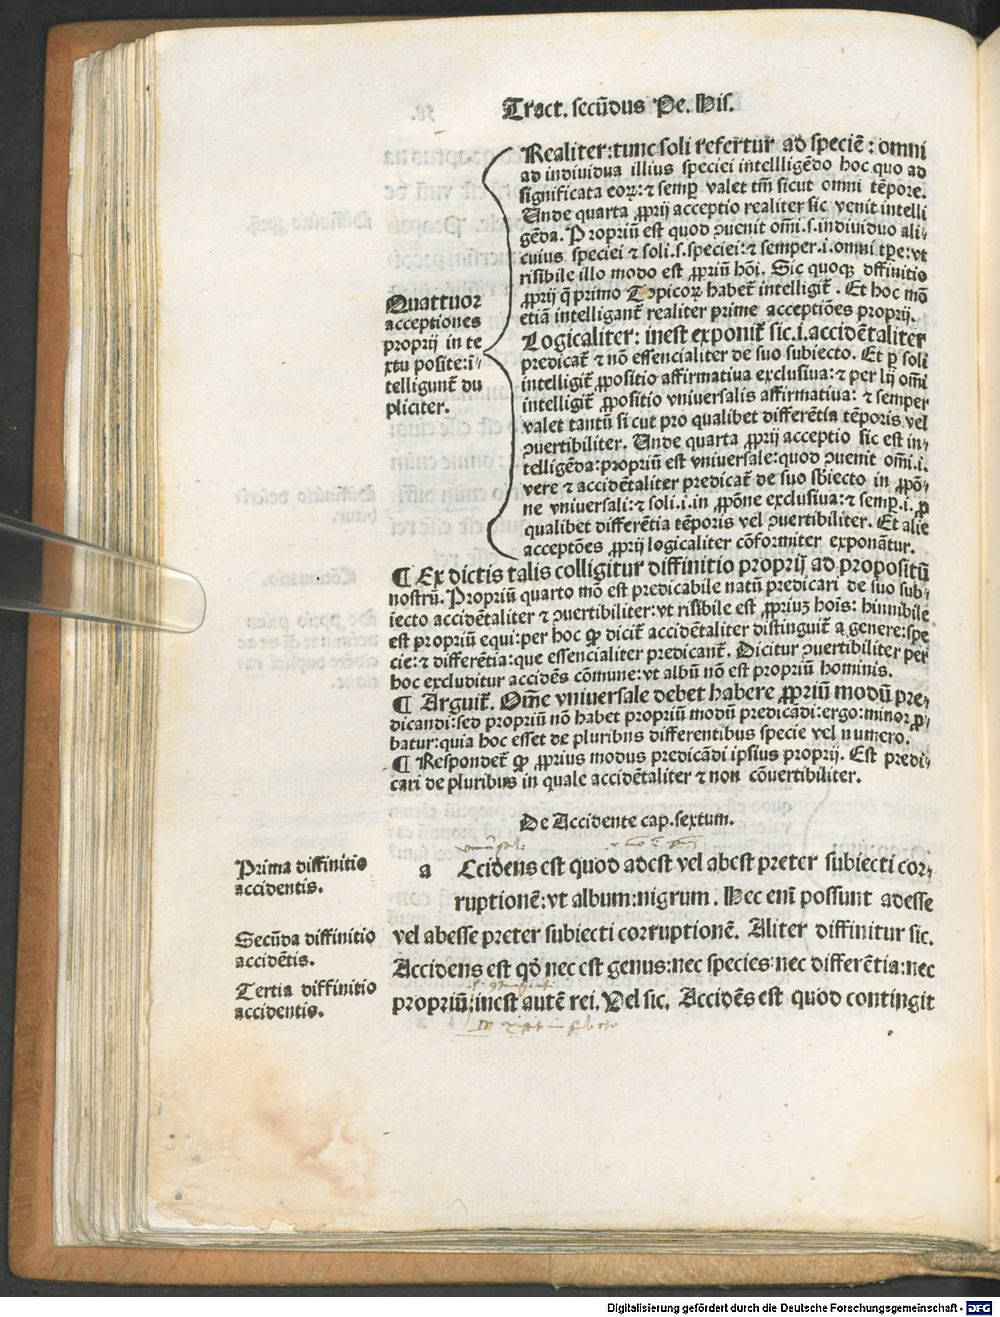 Tract. secũdus Pe. His.
Quattuor
acceptiones
proprij in te
xtu posite: ī⸗
telligunt᷑ du
pliciter.
Realiter: tunc soli refertur ad speciẽ: omni
ad individua illius speciei intellligẽdo hoc quo ad
significata eoꝝ: ⁊ semꝑ valet tm̃ sicut omni tẽpore.
Unde quarta ꝓprij acceptio realiter sic venit intelli
gẽda. Propriũ est quod ꝯuenit om̃i.s. individuo ali⸗
cuius speciei ⁊ soli.s.speciei: ⁊ semper.i.omni tꝑe: vt
risibile illo modo est ꝓpriũ hoĩ. Sic quoqꝫ diffinitio
ꝓprij q̃ primo Topicoꝝ habet᷑ intelligit᷑. Et hoc mõ
etiã intelligant᷑ realiter prime acceptiões proprij.
Logicaliter: inest exponit᷑ sic.i.accidẽtaliter
predicat᷑ ⁊ nõ essencialiter de suo subiecto. Et ꝑ soli
intelligit᷑ ꝓpositio affirmatiua exclusiua: ⁊ per lij om̃i
intelligit᷑ ꝓpositio vniuersalis affirmatiua: ⁊ semper
valet tantũ si cut pro qualibet differẽtia tẽporis vel
ꝯuertibiliter. Unde quarta ꝓprij acceptio sic est in⸗
telligẽda: propriũ est vniuersale: quod ꝯuenit om̃i.i.
vere ⁊ accidẽtaliter predicat᷑ de suo sb̃iecto in ꝓpõ⸗
ne vniuersali: ⁊ soli.i.in ꝓpõne exclusiua: ⁊ semꝑ.i.ꝓ
qualibet differẽtia tẽporis vel ꝯuertibiliter. Et alie
acceptões ꝓprij logicaliter cõformiter exponãtur.
¶ Ex dictis talis colligitur diffinitio proprij ad propositũ
nostrũ. Propriũ quarto mõ est predicabile natũ predicari de suo sub⸗
iecto accidẽtaliter ⁊ ꝯuertibiliter: vt risibile est ꝓpriuꝫ hoĩs: hinnibile
est propriũ equi: per hoc ꝙ dicit᷑ accidẽtaliter distinguit᷑ a genere: spe
cie: ⁊ differẽtia: que essencialiter predicant᷑. Dicitur ꝯuertibiliter per
hoc excluditur accidẽs cõmune: vt albũ nõ est propriũ hominis.
¶ Arguit᷑. Om̃e vniuersale debet habere ꝓpriũ modũ pre⸗
dicandi: sed propriũ nõ habet propriũ modũ predicãdi: ergo: minor ꝓ⸗
batur: quia hoc esset de pluribus differentibus specie vel numero.
¶ Respondet᷑ ꝙ ꝓprius modus predicãdi ipsius proprij. Est predi⸗
cari de pluribus in quale accidẽtaliter ⁊ non cõuertibiliter.
De Accidente cap. sextum.
Prima diffinitio
accidentis.
a Ccidens est quod adest vel abest preter subiecti cor⸗
ruptionẽ: vt album: nigrum. Hec eni᷑ possunt adesse
Secũda diffinitio
accidẽtis.
vel abesse preter subiecti corruptionẽ. Aliter diffinitur sic.
Accidens est qđ nec est genus: nec species: nec differẽtia: nec
Tertia diffinitio
accidentis.
propriũ: inest autẽ rei. Vel sic. Accidẽs est quod contingit
Digitalisierung gefördert durch die Deutsche Forschungsgemeinschaft - DFG